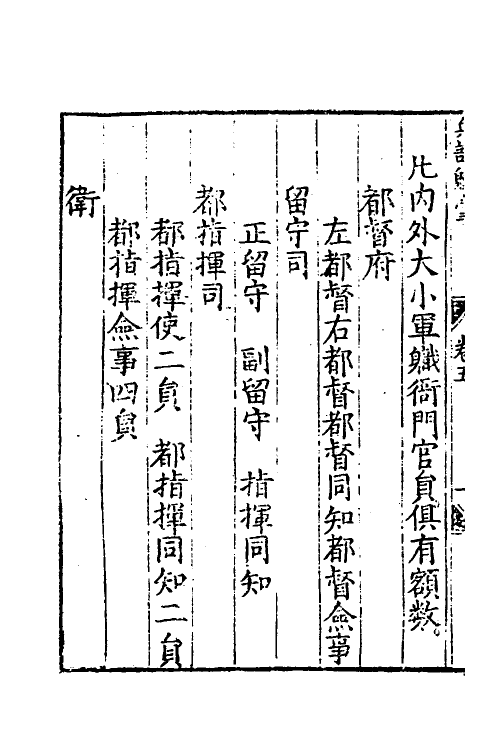 卷五
凡内外大小軍軄衙門官員俱有額数。
都督府
左都督右都督都督同知都督僉事
留守司
正留守　副留守　指揮同知
都指揮司
都指揮使二員　都指揮同知二員
都指揮僉事四員
衛